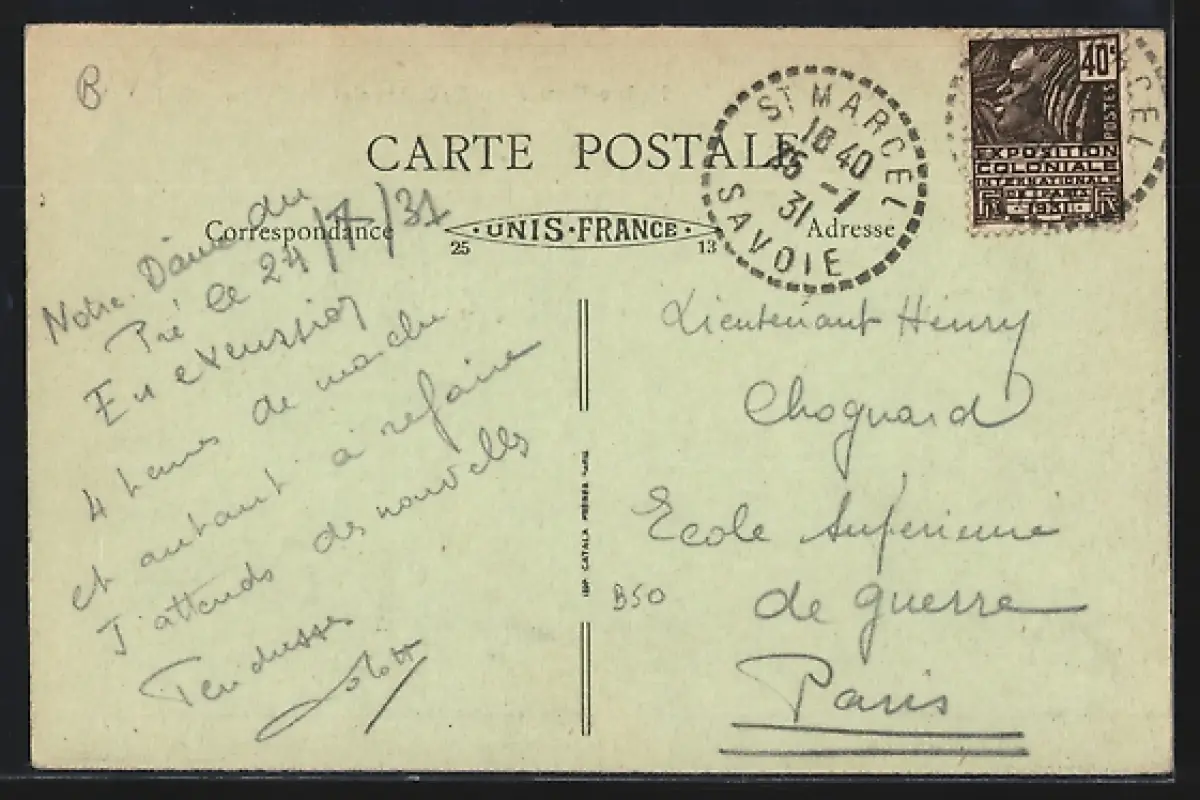 B
CARTE POSTALE
Correspondance
UNIS-FRANCE
25
13
Adresse
ST MARCEL
18 40
25 -1
31
SAVOIE
CEL
40c
POSTES
EXPOSITION
COLONIALE
INTERNATIONALE
DE PARIS
1931
Notre Dame du
Pré le 24/7/31
En excursion
4 heures de marche
et autant à refaire
J'attends des nouvelles
Tendresses
Lieutenant Henry
Chognard
Ecole Supérieure
de guerre
Paris
B50
IMP. CATALA FRÈRES PARIS